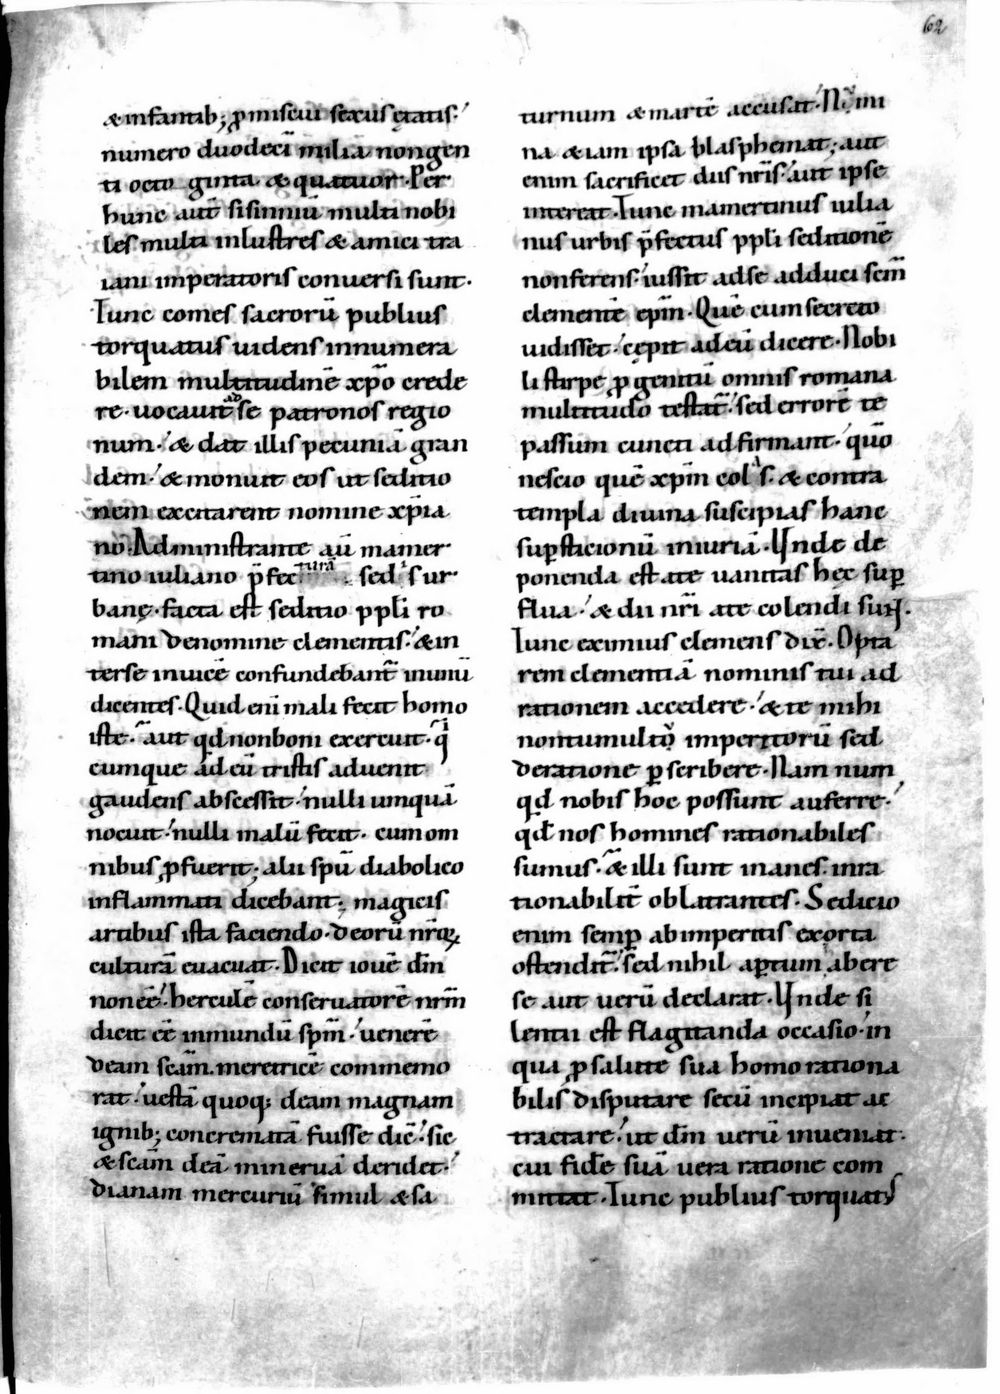 62
& infantib; p̱miscui sexus ętatis.'
numero duodeci milia nongen
ti octo ginta & quatuor. Per
hunc aut̄ sisinniū multi nobi
les multi inlustres & amici tra
iani imperatoris conuersi sunt.
Tunc comes sacrorū publius
torquatus uidens innumera
bilem multitudinē xp̄o crede
re. uocauit ad se patronos regio
num.' & dat illis pecuniā gran
dem.' & monuit eos ut seditio
nem excitarent nomine xp̄ia
no. Administrante aū mamer
tino iuliano p̄fecturā sed is ur
banę. facta est seditio ppl̄i ro
mani de nomine clementis.' & in
terse inuicē confundebant̄ inuniū
dicentes. Quid eni mali fecit homo
iste. aut qd non boni exercuit. qi
cumque ad eū tristis aduenit
gaudens abscessit.' nulli umquā
nocuit.' nulli malū fecit. cum om
nibus p̱fuerit; alii spū diabolico
inflammati dicebant; magicis
artibus ista faciendo. deorū nr̄oꝝ
culturā euacuat. Dicit iouē dm̄
non eē.' herculē conseruatorē nrm̄
dicit eē inmundū spm̄.' uenerē
deam scam̄. meretricē commemo
rat.' uestā quoq; deam magnam
ignib; concrematā fuisse dic̄.' sic
& scam̄ deā mineruā deridet.'
dianam mercuriū simul & sa
turnum & martē accusat. Nomi
na & iam ipsa blasphemat; aut
enim sacrificet diis nr̄is.' aut ipse
intereat. Tunc mamertinus iulia
nus urbis p̄fectus ppl̄i seditionē
non ferens.' iussit ad se adduci scm̄
clementē epm̄. Quē cum secreto
uidisset.' cępit ad eū dicere. Nobi
li stirpe p̱genitū omnis romana
multitudo testat̄.' sed errorē te
passum cuncti adfirmant. quō
nescio quē xpm̄ colis. & contra
templa diuina suscipias hanc
sup̱sticionū iniuriā. Unde de
ponenda est a te uanitas hęc sup̱
flua.' & dii nr̄i a te colendi sunt.
Tunc eximius clemens dix̄. Opta
rem clementiā nominis tui ad
rationem accedere.' & te mihi
non tumultū imperitorū sed
de ratione p̱scribere. Nam num
qd nobis hoc possunt auferre.'
qd nos homines rationabiles
sumus. & illi sunt inanes. inra
tionabilit̄ oblatrantes. Sedicio
enim semp̱ ab imperitis exorta
ostendit̄.' sed nihil ap̱tum abere
se aut uerū declarat. Unde si
lentii est flagitanda occasio. in
qua p̱ salute sua homo rationa
bilis disputare secū incipiat ac
tractare.' ut dm̄ uerū inueniat.
cui fidē suā uera ratione com
mittat. Tunc publius torquatus